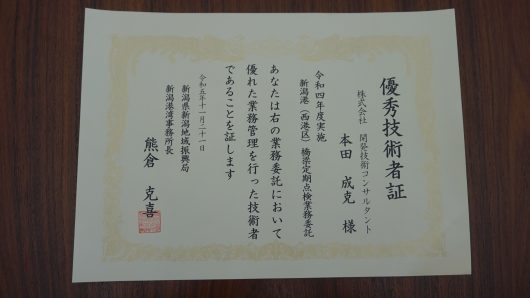 優秀技術者証
株式会社 開発技術コンサルタント
本田 成克 様
令和四年度実施
新潟港(西港区)橋梁定期点検業務委託
あなたは右の業務委託において
優れた業務管理を行った技術者
であることを証します
令和五年十一月二十一日
新潟県新潟地域振興局
新潟港湾事務所長
熊倉 克喜